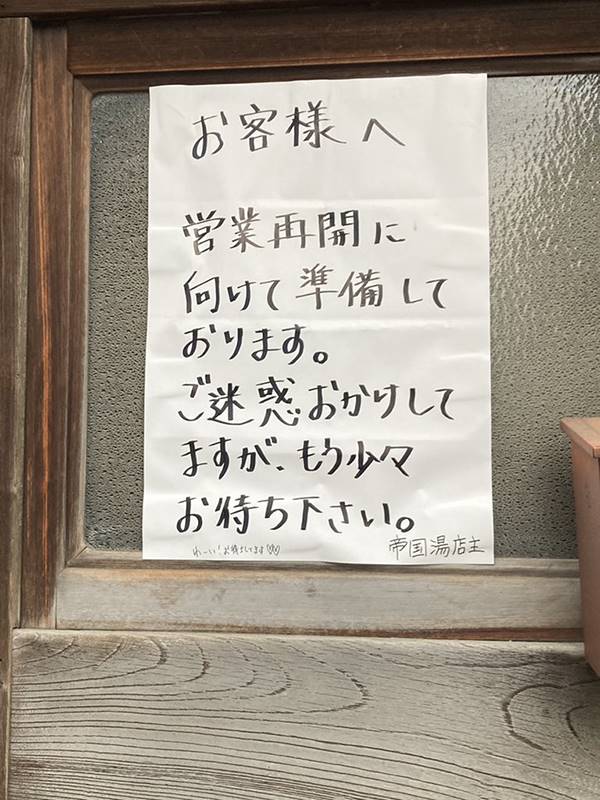 お客様へ
営業再開に
向けて準備して
おります。
ご迷惑おかけして
ますが、もう少々
お待ち下さい。
わーい！お待ちしてます♡♡
帝国湯店主